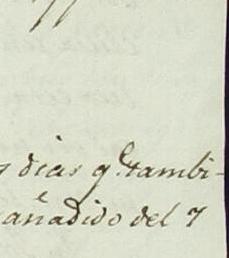 dias q.e tambi-
añadido del 7